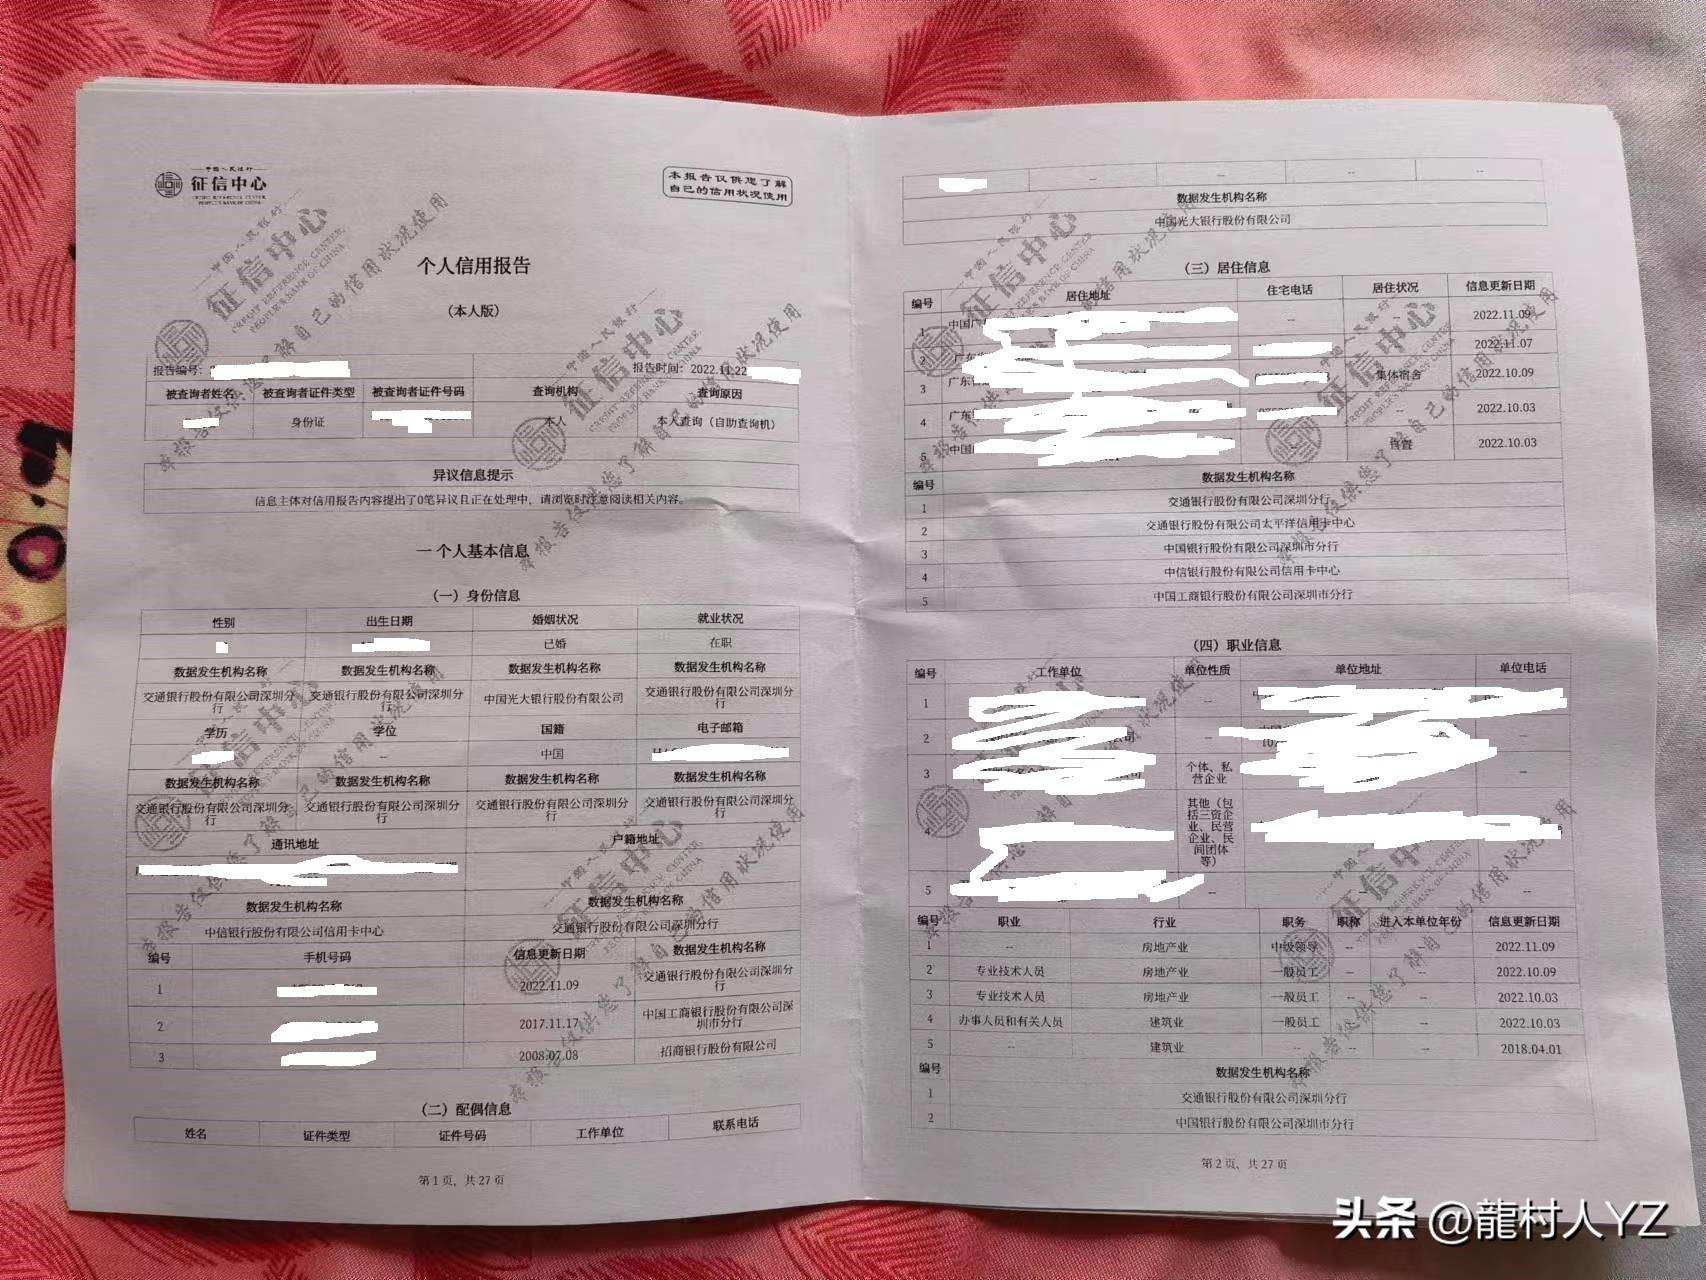 中国人民银行
征信中心
CREDIT REFERENCE CENTER,
PEOPLE'S BANK OF CHINA
本报告仅供您了解
自己的信用状况使用
个人信用报告
(本人版)
报告编号:
报告时间: 2022.11.22
被查询者姓名 被查询者证件类型 被查询者证件号码 查询机构 查询原因
身份证 本人 本人查询(自助查询机)
异议信息提示
信息主体对信用报告内容提出了0笔异议且正在处理中,请浏览时注意阅读相关内容。
一 个人基本信息
(一)身份信息
性别 出生日期 婚姻状况 就业状况
已婚 在职
数据发生机构名称 数据发生机构名称 数据发生机构名称 数据发生机构名称
交通银行股份有限公司深圳分行 交通银行股份有限公司深圳分行 中国光大银行股份有限公司 交通银行股份有限公司深圳分行
学历 学位 国籍 电子邮箱
-- 中国
数据发生机构名称 数据发生机构名称 数据发生机构名称 数据发生机构名称
交通银行股份有限公司深圳分行 交通银行股份有限公司深圳分行 交通银行股份有限公司深圳分行 交通银行股份有限公司深圳分行
通讯地址 户籍地址
数据发生机构名称 数据发生机构名称
中信银行股份有限公司信用卡中心 交通银行股份有限公司深圳分行
编号 手机号码 信息更新日期 数据发生机构名称
1 2022.11.09 交通银行股份有限公司深圳分行
2 2017.11.17 中国工商银行股份有限公司深圳市分行
3 2008.07.08 招商银行股份有限公司
(二)配偶信息
姓名 证件类型 证件号码 工作单位 联系电话
第 1 页, 共 27 页
-- -- -- --
数据发生机构名称
中国光大银行股份有限公司
(三)居住信息
编号 居住地址 住宅电话 居住状况 信息更新日期
1 中国广 -- -- 2022.11.09
2 广东 -- 2022.11.07
3 广东 集体宿舍 2022.10.09
4 广东 -- 2022.10.03
5 中国 -- 自置 2022.10.03
编号 数据发生机构名称
1 交通银行股份有限公司深圳分行
2 交通银行股份有限公司太平洋信用卡中心
3 中国银行股份有限公司深圳市分行
4 中信银行股份有限公司信用卡中心
5 中国工商银行股份有限公司深圳市分行
(四)职业信息
编号 工作单位 单位性质 单位地址 单位电话
1 --
2 -- --
3 个体、私营企业 --
4 其他(包括三资企业、民营企业、民间团体等)
5 -- -- --
编号 职业 行业 职务 职称 进入本单位年份 信息更新日期
1 -- 房地产业 中级领导 -- -- 2022.11.09
2 专业技术人员 房地产业 一般员工 -- -- 2022.10.09
3 专业技术人员 房地产业 一般员工 -- -- 2022.10.03
4 办事人员和有关人员 建筑业 一般员工 -- -- 2022.10.03
5 -- 建筑业 -- -- -- 2018.04.01
编号 数据发生机构名称
1 交通银行股份有限公司深圳分行
2 中国银行股份有限公司深圳市分行
第 2 页, 共 27 页
头条 @龍村人YZ